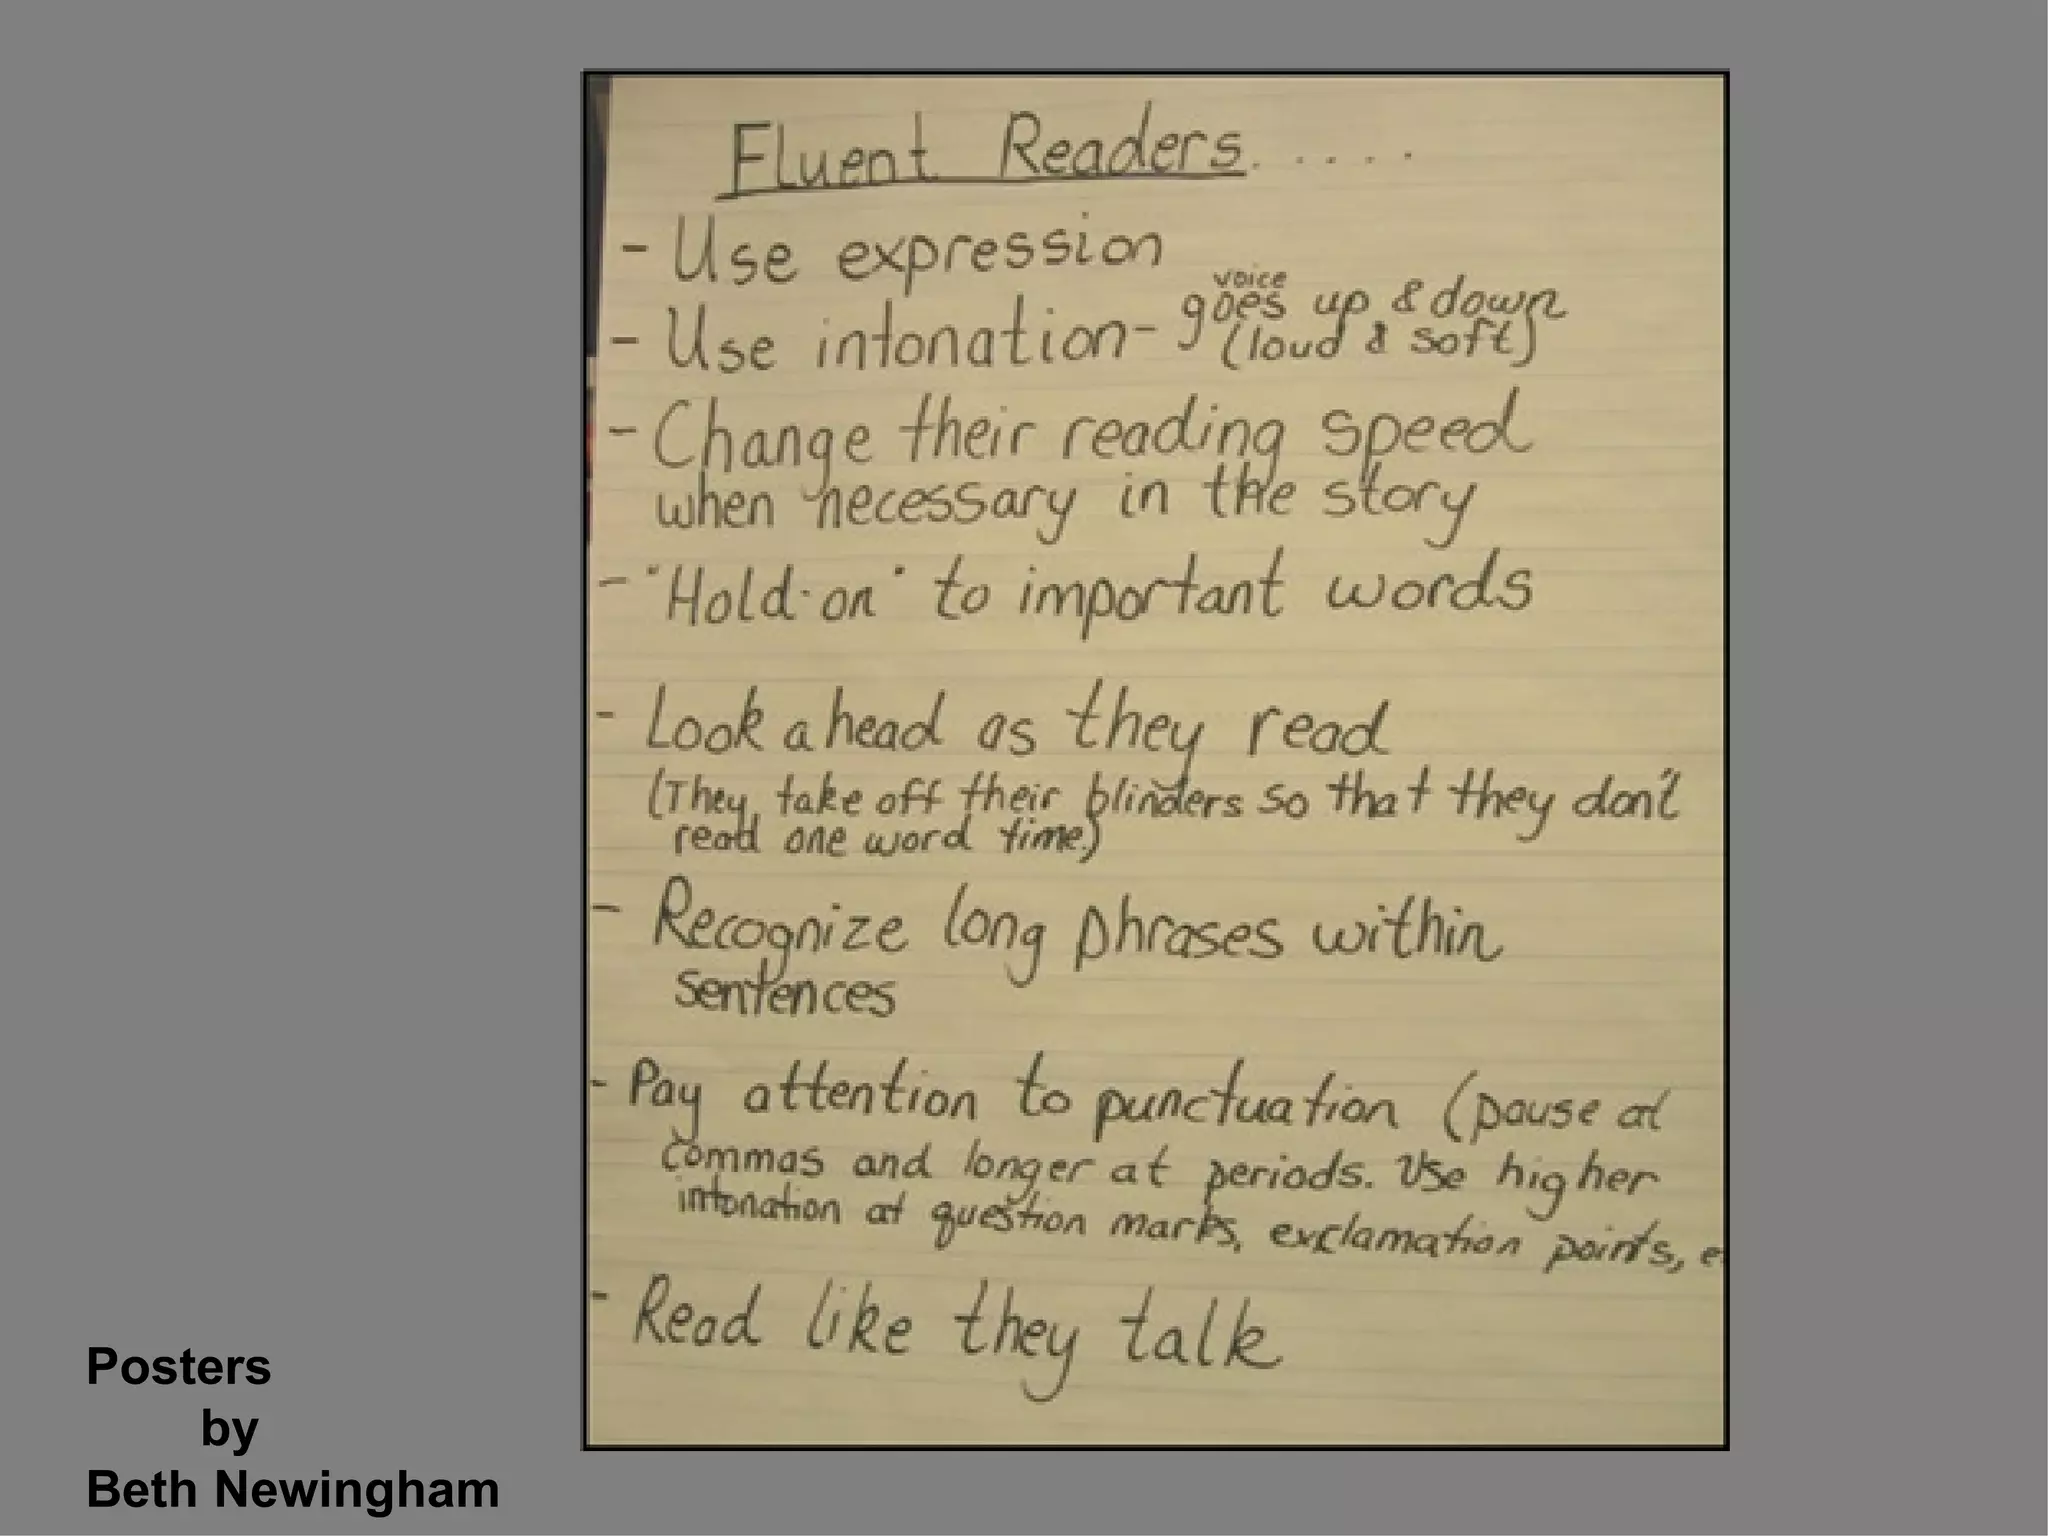 Fluent Readers.....
- Use expression
- Use intonation- voice goes up & down
(loud & soft)
- Change their reading speed
when necessary in the story
- "Hold-on" to important words
- Look ahead as they read
(They take off their blinders so that they don't
read one word time.)
- Recognize long phrases within
sentences
- Pay attention to punctuation (pause at
commas and longer at periods. Use higher
intonation at question marks, exclamation points,
- Read like they talk
Posters
by
Beth Newingham